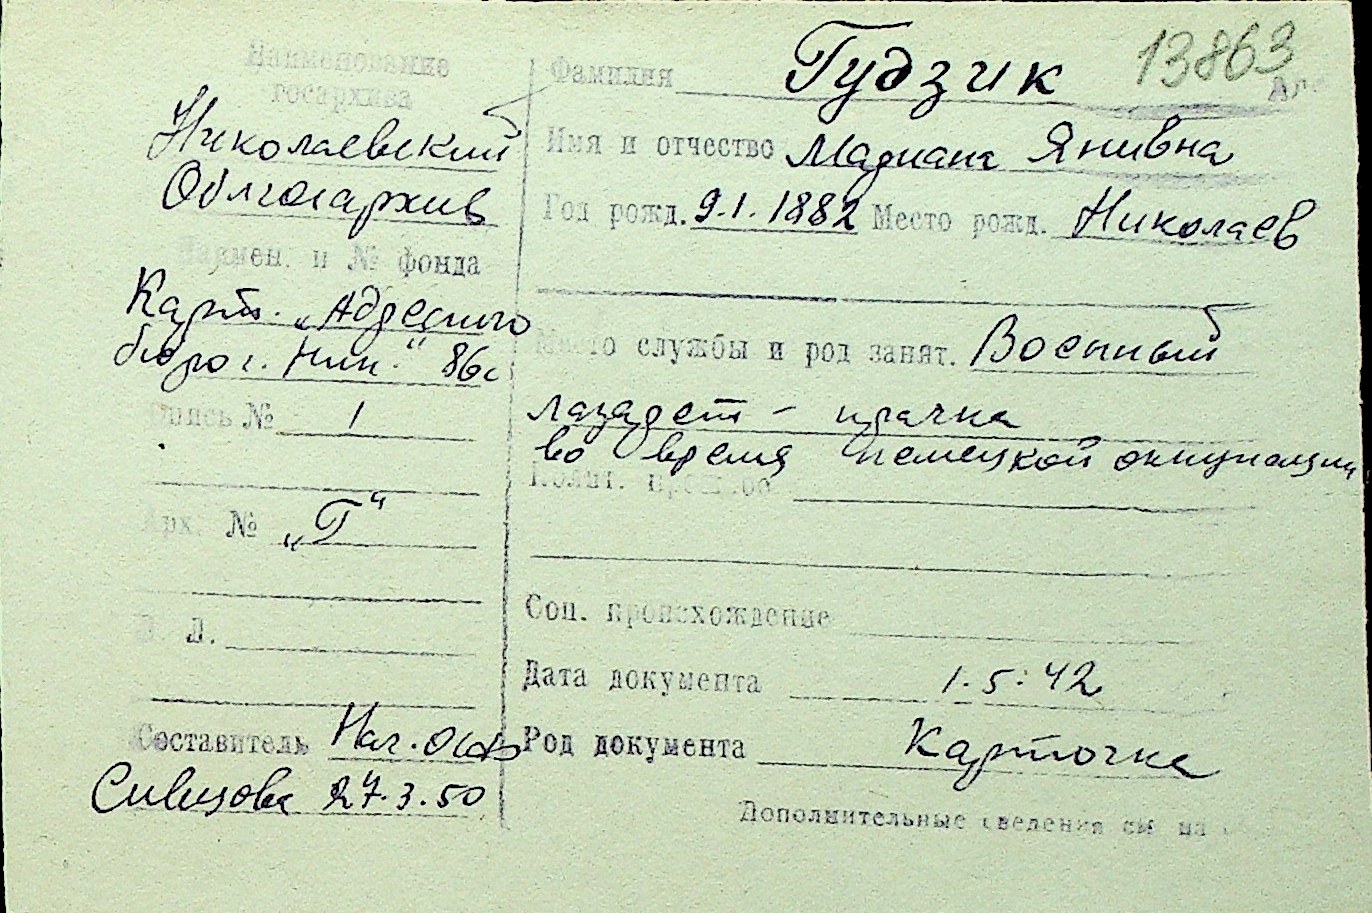 Наименование
госархива
Николаевский
Облгосархив
Наимен. и № фонда
Карт. „Адресного
бюро г. Ник." 86с
Опись № 1
Арх. № „Г"
Л. Л.
Составитель Нач. ОСФ
Сивцова 27.3.50
Фамилия Гудзик 13863
Имя и отчество Мариана Янивна
Год рожд. 9.1.1882 Место рожд. Николаев
Место службы и род занят. Военный
лазарет - прачка
во время немецкой оккупации
Полит.
Соц. происхождение
Дата документа 1.5.42
Род документа Карточка
Дополнительные сведения см. на